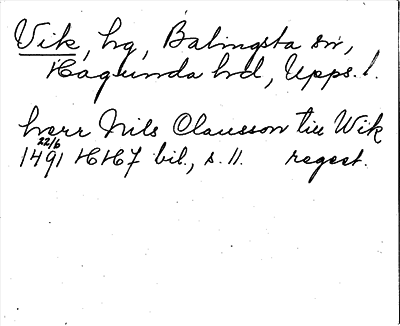 Vik, hg, Balingsta sn,
Hagunda hd, Upps. l.
herr Nils Clausson till Wik
22/6
1491 HH7 bil., s. 11. regest.